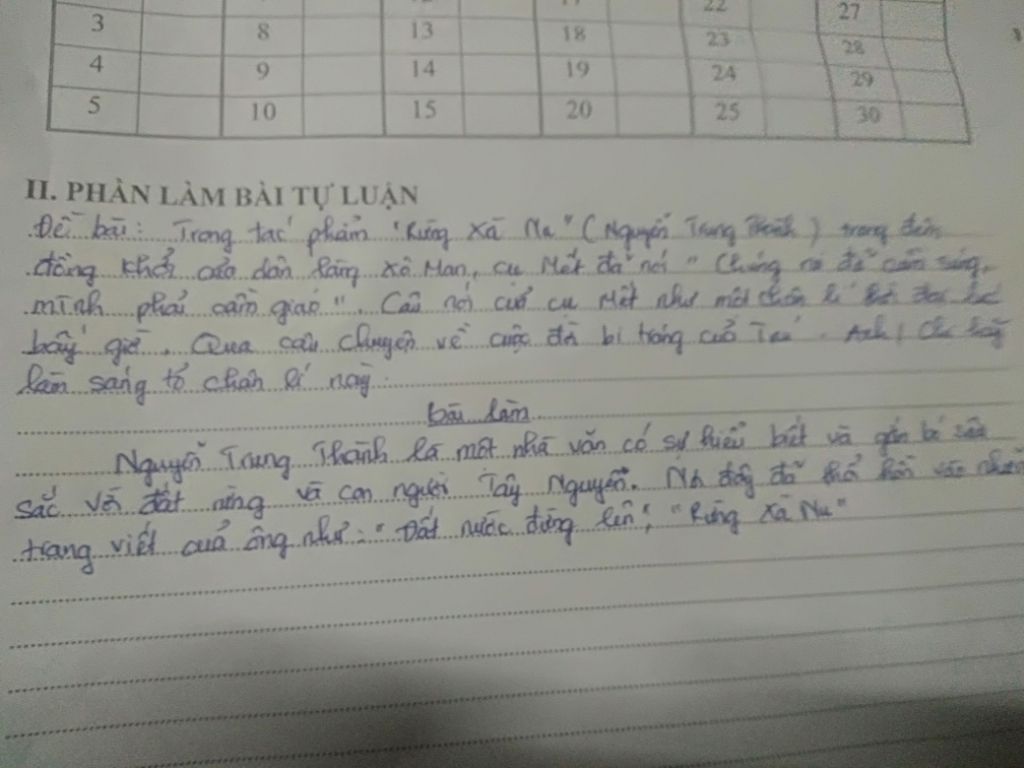 22 27
3 8 13 18 23 28
4 9 14 19 24 29
5 10 15 20 25 30
II. PHẦN LÀM BÀI TỰ LUẬN
Đề bài: Trong tác phẩm "Rừng Xà Nu" (Nguyễn Trung Thành) trong đêm
đồng khởi của dân làng Xô Man, cụ Mết đã nói "Chúng nó đã cầm súng,
mình phải cầm giáo". Câu nói của cụ Mết như một chân lí
bấy giờ. Qua câu chuyện về cuộc đời bi tráng của Tnú. Anh/Chị hãy
làm sáng tỏ chân lí này.
bài làm
Nguyễn Trung Thành là một nhà văn có sự hiểu biết và gắn bó sâu
sắc với đất rừng và con người Tây Nguyên. đã thổi hồn vào
trang viết của ông như: "Đất nước đứng lên", "Rừng Xà Nu"